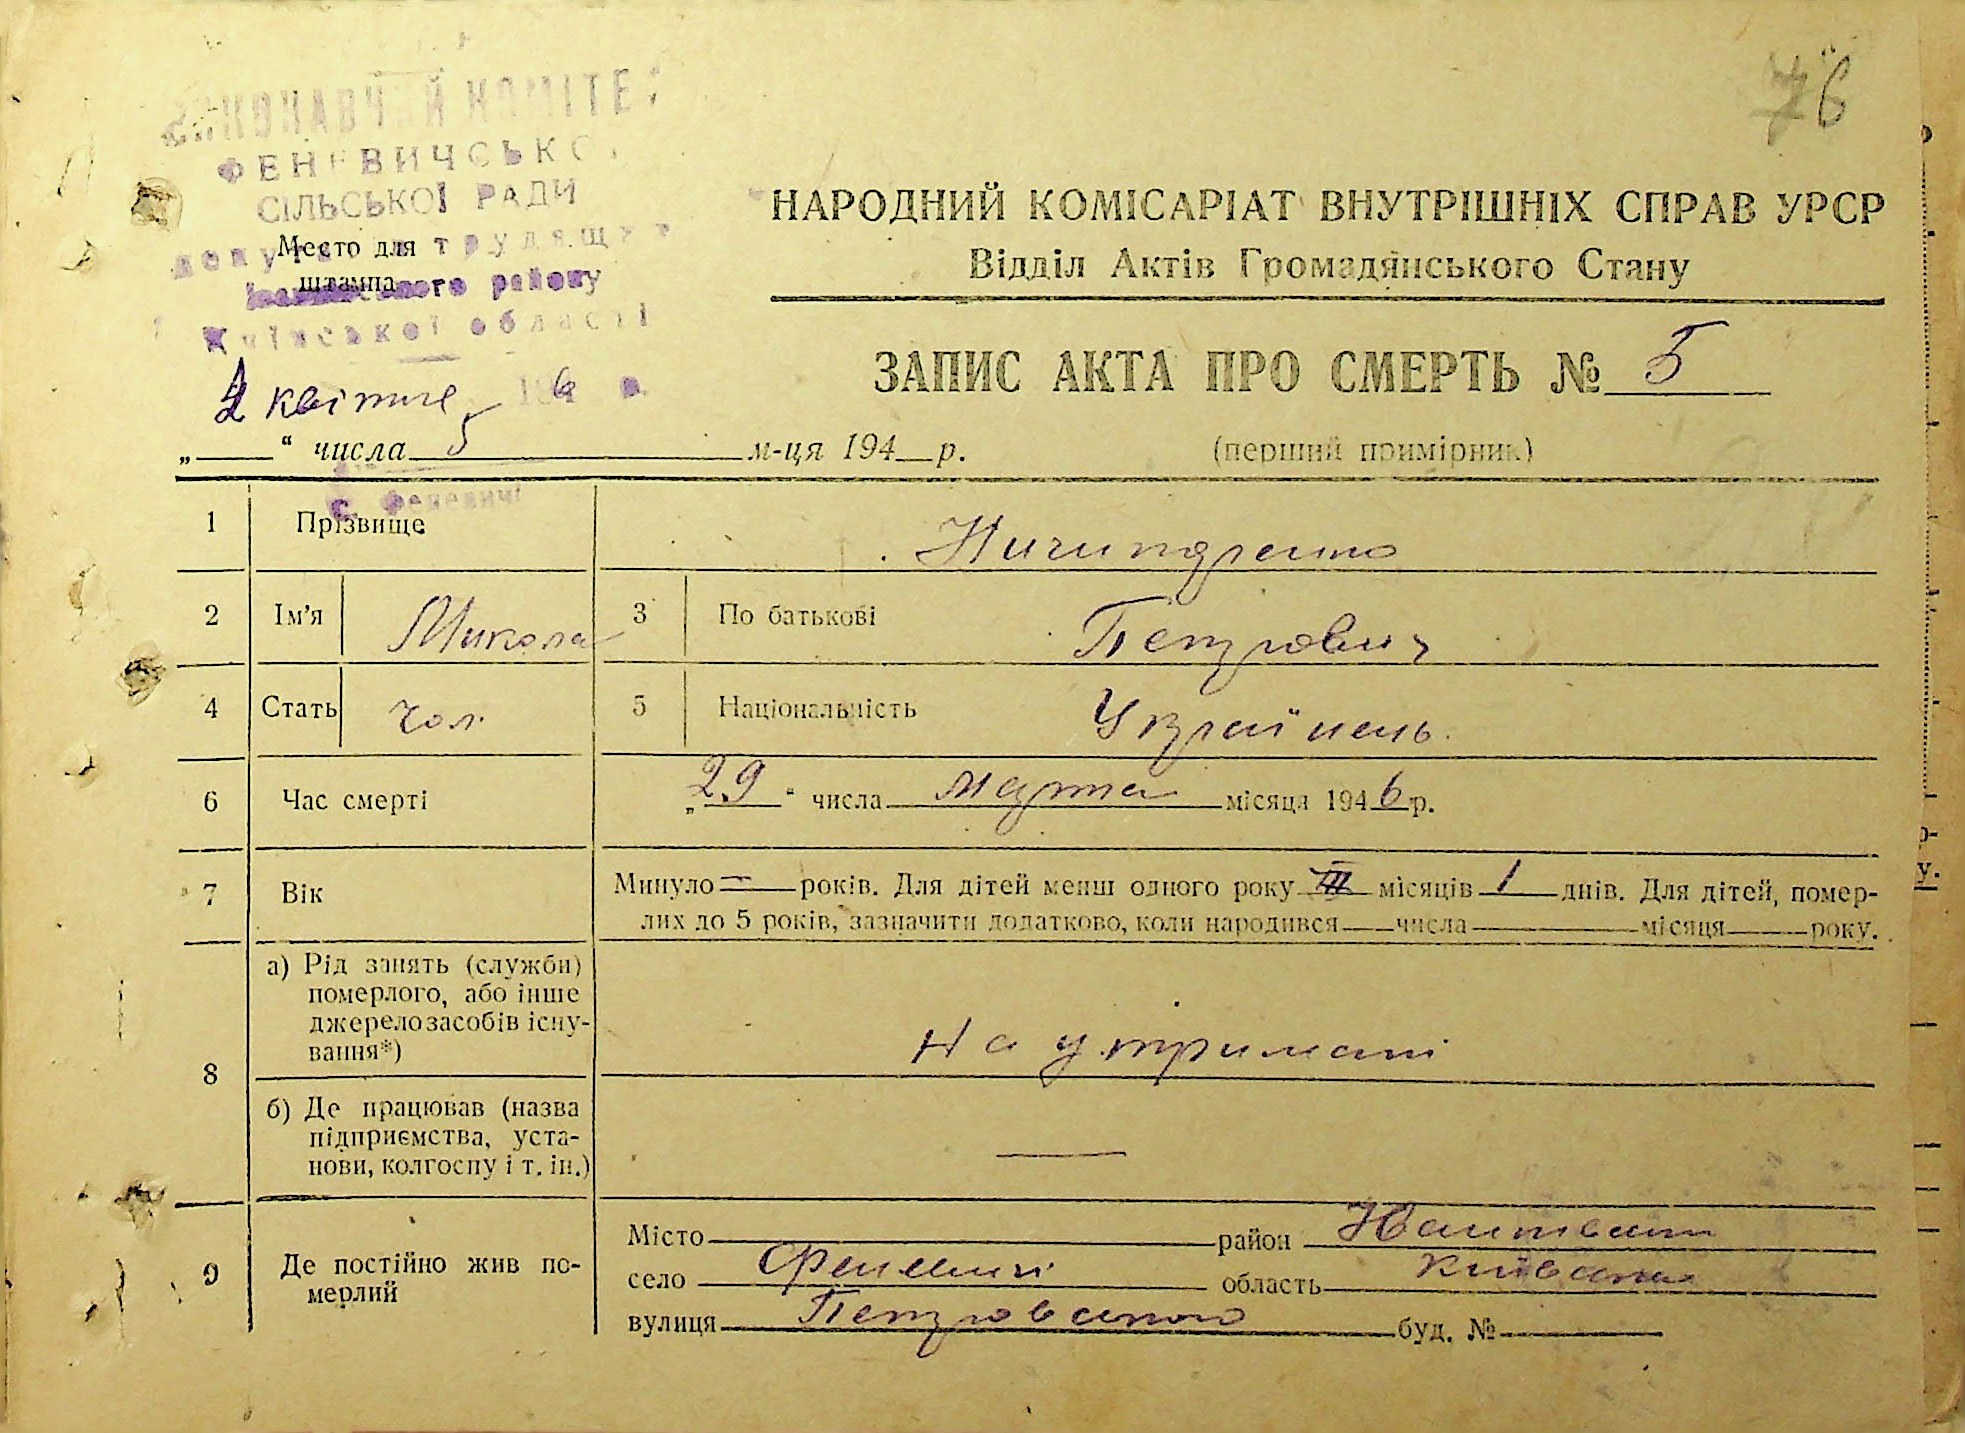 76
ВИКОНАВЧИЙ КОМІТЕТ
ФЕНЕВИЧСЬКОЇ
СІЛЬСЬКОЇ РАДИ
Место для
трудящих
штампа
району
Київської області
4 квітня 1946 р.
5
„ “ числа м-ця 194 р.
с. Феневичі
НАРОДНИЙ КОМІСАРІАТ ВНУТРІШНІХ СПРАВ УРСР
Відділ Актів Громадянського Стану
ЗАПИС АКТА ПРО СМЕРТЬ № 5
(перший примірник)
1 Прізвище Ничипоренко
2 Ім’я Микола 3 По батькові Петрович
4 Стать чол. 5 Національність Українець.
6 Час смерті „29“ числа марта місяця 1946 р.
7 Вік Минуло — років. Для дітей менш одного року III місяців 1 днів. Для дітей, помер-
лих до 5 років, зазначити додатково, коли народився числа місяця року.
8 а) Рід занять (служби)
померлого, або інше
джерело засобів існу-
вання*) На утримані
б) Де працював (назва
підприємства, уста-
нови, колгоспу і т. ін.) —
9 Де постійно жив по-
мерлий
Місто район
село Феневичі область Київська
вулиця Петровського буд. №